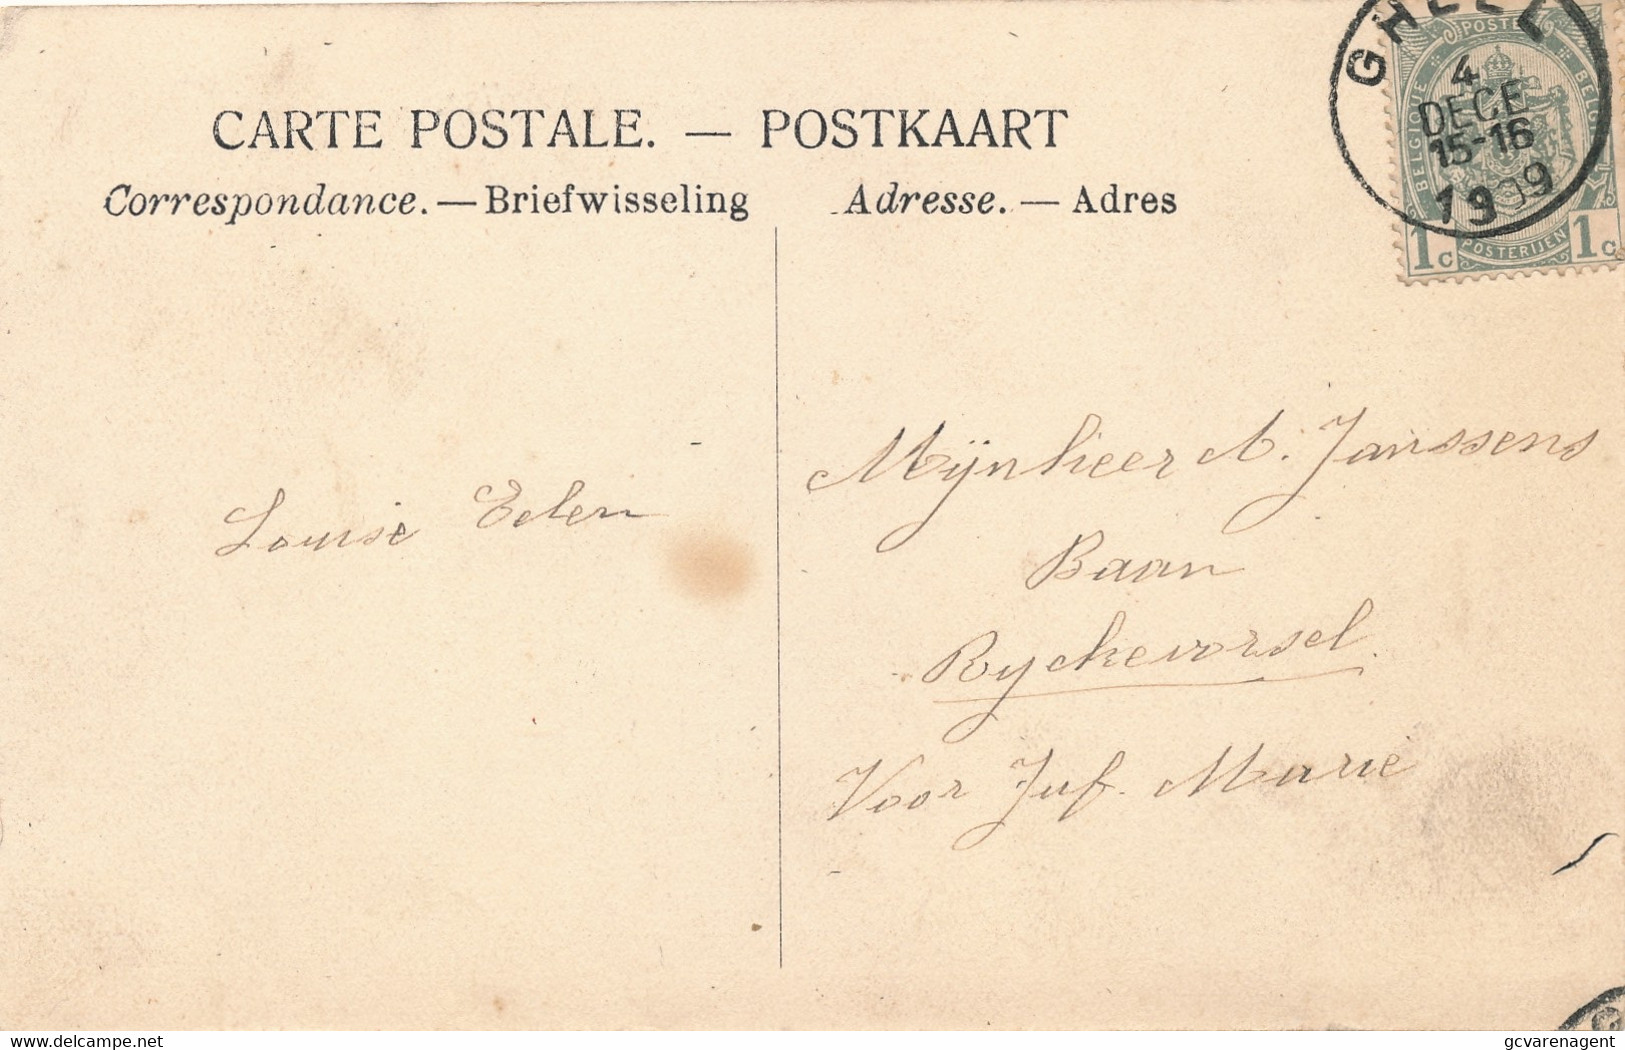 CARTE POSTALE. — POSTKAART
Correspondance. — Briefwisseling
Adresse. — Adres
GHEEL
4
DECE
15-16
1909
POSTES
BELGIQUE
BELGIË
1c POSTERIJEN 1c
Louise Eelen
Mijnheer A. Janssens
Baan
Ryckevorsel.
Voor Juf. Marie
gcvarenagent